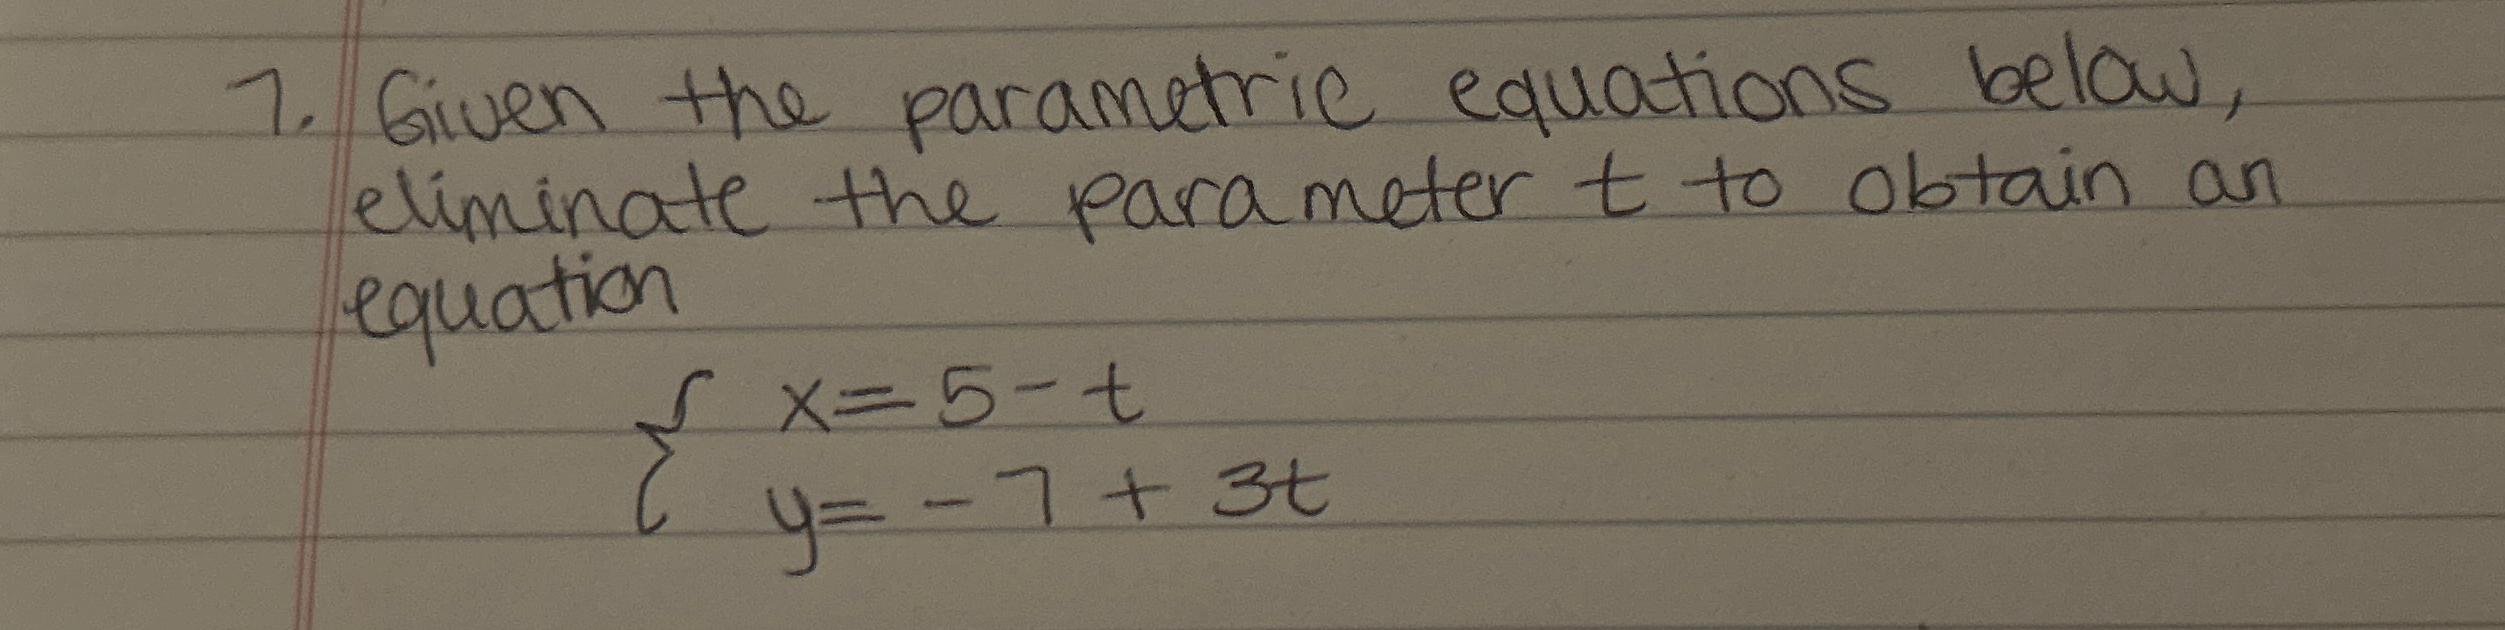 7. Given the parametric equations below,
eliminate the parameter t to obtain an
equation
{ x = 5 - t
y = - 7 + 3t